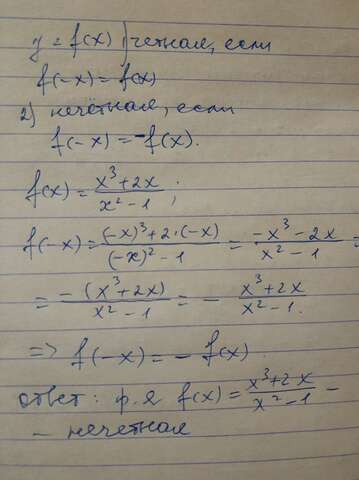 y = f(x) | четная, если
f(-x) = f(x)
2) нечётная, если
f(-x) = -f(x).
f(x) = \frac{x^3+2x}{x^2-1} ;
f(-x) = \frac{(-x)^3+2·(-x)}{(-x)^2-1} = \frac{-x^3-2x}{x^2-1} =
= \frac{-(x^3+2x)}{x^2-1} = - \frac{x^3+2x}{x^2-1}.
=> f(-x) = - f(x)
ответ: ф.я f(x) = \frac{x^3+2x}{x^2-1} -
- нечетная